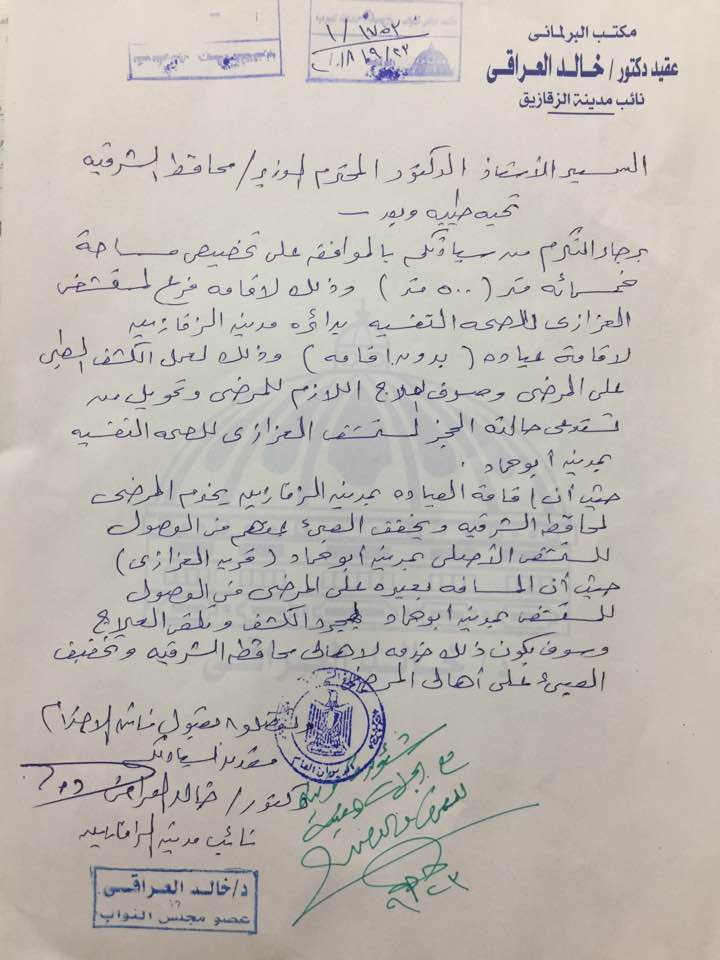 مكتب البرلمانى
عقيد دكتور/ خالد العراقى
نائب مدينة الزقازيق
١٧٥٢ / ١
١٨/٩/٢٣
السيد الأستاذ الدكتور المحترم الوزير/ محافظ الشرقيه
تحيه طيبه وبعد –
برجاء التكرم من سيادتكم بالموافقه على تخصيص مساحة
خمسمائه متر (٥٠٠ متر) وذلك لاقامه فرع لمستشفى
العزازى للصحه النفسيه بدائره مدينه الزقازيق
لاقامة عياده (بدون اقامه) وذلك لعمل الكشف الطبى
على المرضى وصرف العلاج اللازم للمرضى وتحويل من
تستدعى حالته الحجز لمستشفى العزازى للصحه النفسيه
بمدينه أبوحماد.
حيث أن إقامة العياده بمدينه الزقازيق يخدم المرضى
لمحافظه الشرقيه ويخفف العبئ عنهم من الوصول
للمستشفى الأصلى بمدينه أبوحماد (قريه العزازى)
حيث أن المسافه بعيده على المرضى من الوصول
للمستشفى بمدينه أبوحماد لمجرد الكشف وتلقى العلاج
وسوف يكون ذلك خدمه لاهالى محافظه الشرقيه وتخفيف
العبئ على أهالى المرضى
وتفضلوا بقبول فائق الاحترام
مقدمه لسيادتكم
دكتور/ خالد العراقى
نائب مدينه الزقازيق
د/خالد العراقى
عضو مجلس النواب